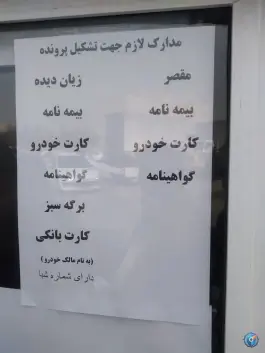 مدارک لازم جهت تشکیل پرونده
مقصر
بیمه نامه
کارت خودرو
گواهینامه
زیان دیده
بیمه نامه
کارت خودرو
گواهینامه
برگه سبز
کارت بانکی
(به نام مالک خودرو)
دارای شماره شبا